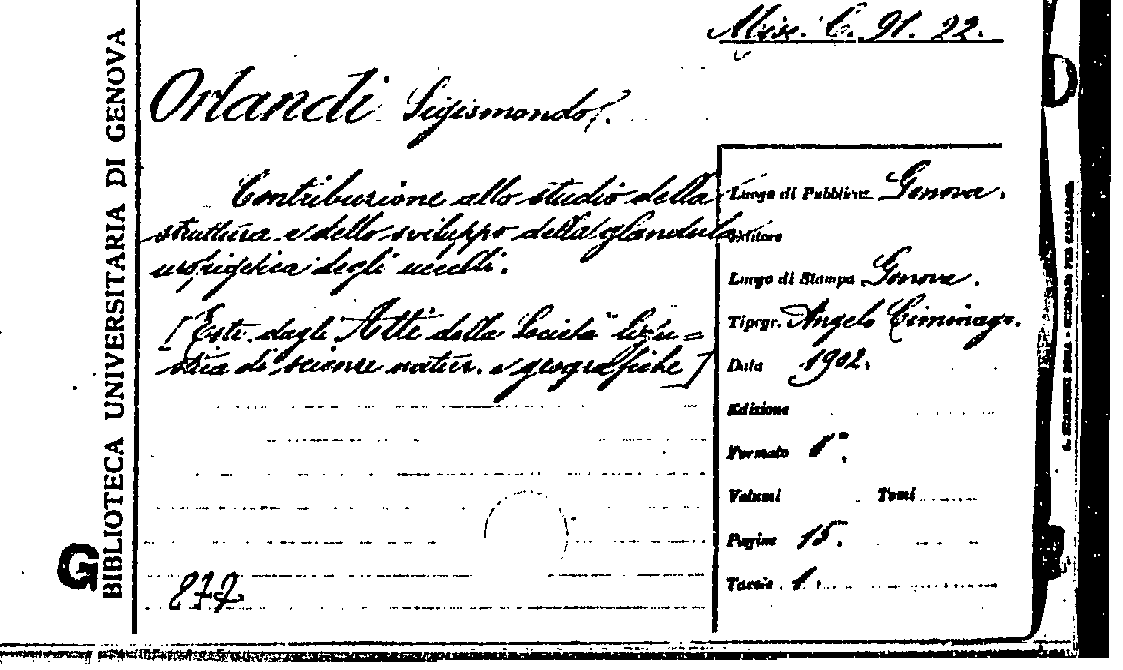 Misc. C. 91. 22.
Orlandi Sigismondo.
Contribuzione allo studio della
struttura e dello sviluppo della glandula
uropigetica degli uccelli.
[Estr. dagli Atti della Società ligu=
stica di scienze natur. e geografiche]
877
Luogo di Pubblicaz. Genova.
Editore
Luogo di Stampa Genova.
Tipogr. Angelo Ciminago.
Data 1902.
Edizione
Formato 8°.
Volumi Tomi
Pagine 15.
Tavole 1.
BIBLIOTECA UNIVERSITARIA DI GENOVA
G
D